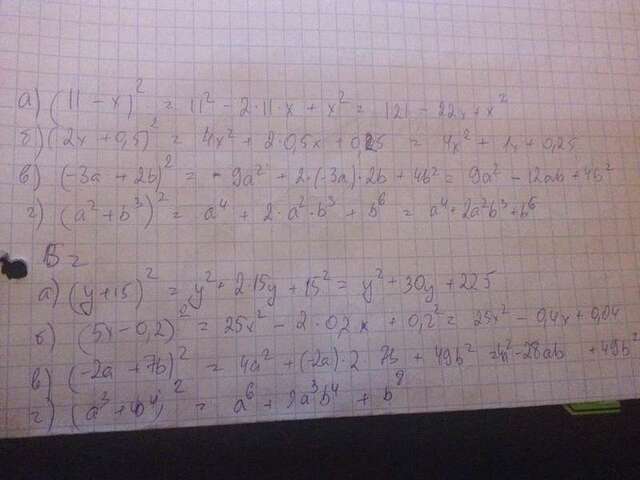 а) (11 - x)² = 11² - 2·11·x + x² = 121 - 22x + x²
б) (2x + 0,5)² = 4x² + 2·0,5x + 0,25 = 4x² + 1x + 0,25
в) (-3a + 2b)² = 9a² + 2·(-3a)·2b + 4b² = 9a² - 12ab + 4b²
г) (a² + b³)² = a⁴ + 2·a²·b³ + b⁶ = a⁴ + 2a²b³ + b⁶
В 2
а) (y + 15)² = y² + 2·15y + 15² = y² + 30y + 225
б) (5x - 0,2)² = 25x² - 2·0,2x + 0,2² = 25x² - 0,4x + 0,04
в) (-2a + 7b)² = 4a² + (-2a)·2·7b + 49b² = 4a² - 28ab + 49b²
г) (a³ + b⁴)² = a⁶ + 2a³b⁴ + b⁸